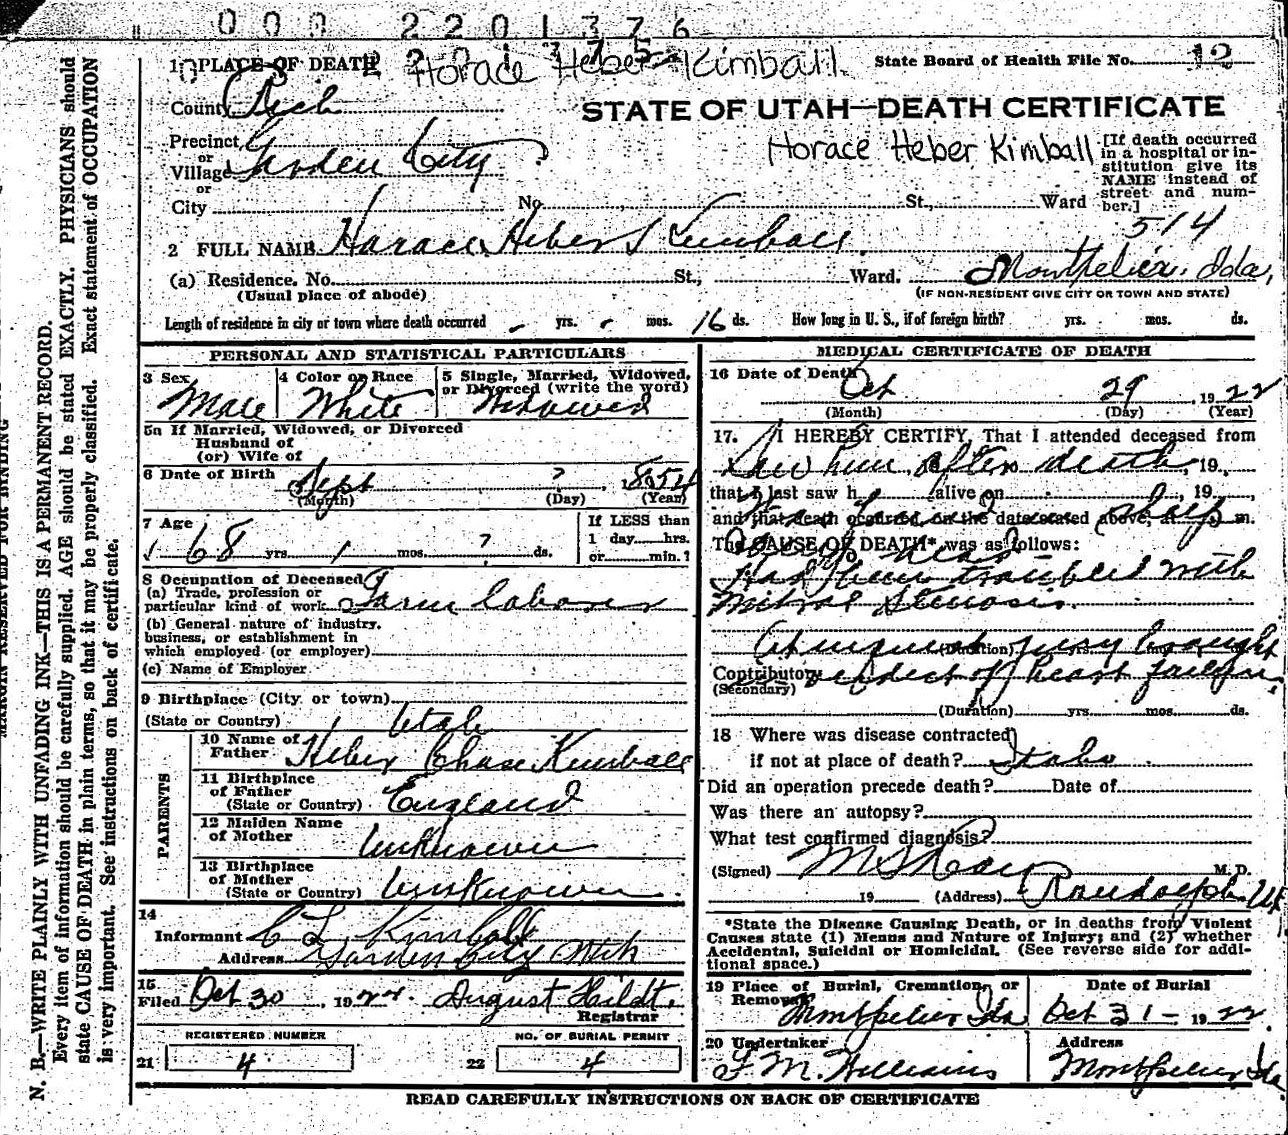 000 2201376
1 PLACE OF DEATH Horace Heber Kimball State Board of Health File No. 12
County Rich
STATE OF UTAH—DEATH CERTIFICATE
Precinct
or
Village Garden City
or
City No. St., Ward
Horace Heber Kimball
[If death occurred
in a hospital or in-
stitution give its
NAME instead of
street and num-
ber.]
514
2 FULL NAME Horace Heber Kimball
(a) Residence. No. St., Ward. Montpelier, Ida,
(Usual place of abode) (IF NON-RESIDENT GIVE CITY OR TOWN AND STATE)
Length of residence in city or town where death occurred - yrs. - mos. 16 ds. How long in U. S., if of foreign birth? yrs. mos. ds.
PERSONAL AND STATISTICAL PARTICULARS
3 Sex 4 Color or Race 5 Single, Married, Widowed,
or Divorced (write the word)
Male White Widowed
5a If Married, Widowed, or Divorced
Husband of
(or) Wife of
6 Date of Birth Sept ? 1854
(Month) (Day) (Year)
7 Age If LESS than
68 yrs. 1 mos. ? ds. 1 day hrs.
or min.?
8 Occupation of Deceased
(a) Trade, profession or
particular kind of work Farm laborer
(b) General nature of industry,
business, or establishment in
which employed (or employer)
(c) Name of Employer
9 Birthplace (City or town)
(State or Country) Utah
PARENTS
10 Name of
Father Heber Chase Kimball
11 Birthplace
of Father
(State or Country) England
12 Maiden Name
of Mother Unknown
13 Birthplace
of Mother
(State or Country) Unknown
14
Informant C L Kimball
Address Garden City Utah
15
Filed Oct 30, 1922. August Hildt.
Registrar
REGISTERED NUMBER NO. OF BURIAL PERMIT
21 4 22 4
MEDICAL CERTIFICATE OF DEATH
16 Date of Death
Oct 29, 1922
(Month) (Day) (Year)
17. I HEREBY CERTIFY, That I attended deceased from
Saw him after death, 19
that I last saw h alive on , 19
and that death occurred, on the date stated above, at m.
The CAUSE OF DEATH* was as follows:
Had been troubled with
Mitral Stenosis.
(Duration) yrs. brought
Contributory heart failure
(Secondary)
(Duration) yrs. mos. ds.
18 Where was disease contracted
if not at place of death?
Did an operation precede death? Date of
Was there an autopsy?
What test confirmed diagnosis?
(Signed) M. D.
19 (Address) Randolph Ut
*State the Disease Causing Death, or in deaths from Violent
Causes state (1) Means and Nature of Injury; and (2) whether
Accidental, Suicidal or Homicidal. (See reverse side for addi-
tional space.)
19 Place of Burial, Cremation, or
Removal Date of Burial
Montpelier Ida Oct 31 - 1922
20 Undertaker Address
F M. Williams Montpelier Ida
READ CAREFULLY INSTRUCTIONS ON BACK OF CERTIFICATE
MARGIN RESERVED FOR BINDING
N. B.—WRITE PLAINLY WITH UNFADING INK—THIS IS A PERMANENT RECORD.
Every item of information should be carefully supplied. AGE should be stated EXACTLY. PHYSICIANS should
state CAUSE OF DEATH in plain terms, so that it may be properly classified. Exact statement of OCCUPATION
is very important. See instructions on back of certificate.